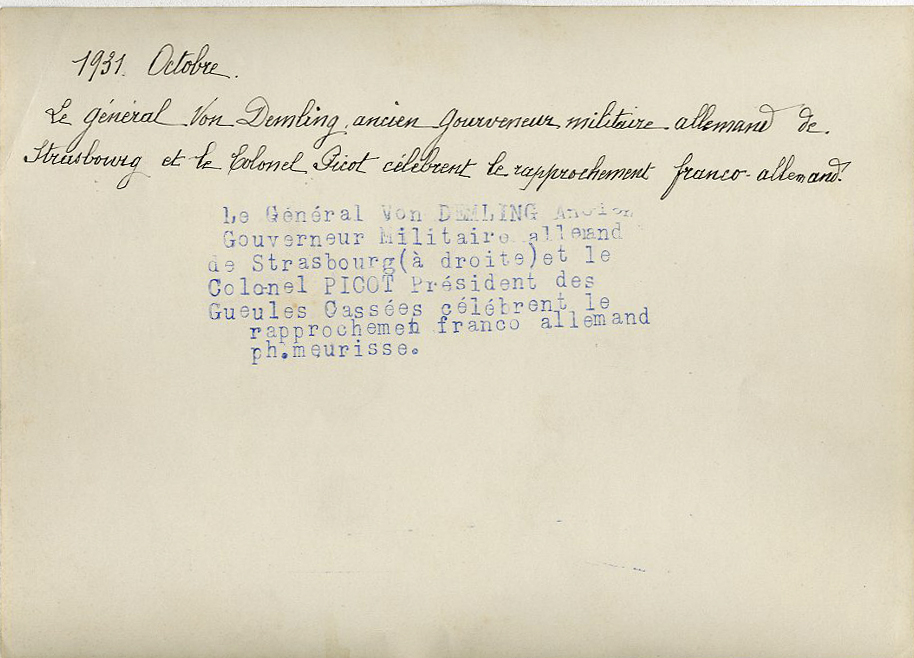 1931. Octobre.
Le général Von Demling, ancien Gourveneur militaire allemand de
Strasbourg et le Colonel Picot célèbrent le rapprochement franco-allemand.
Le Général Von DEMLING Ancien
Gouverneur Militaire allemand
de Strasbourg(à droite)et le
Colonel PICOT Président des
Gueules Cassées célébrent le
rapprochemen franco allemand
ph.meurisse.